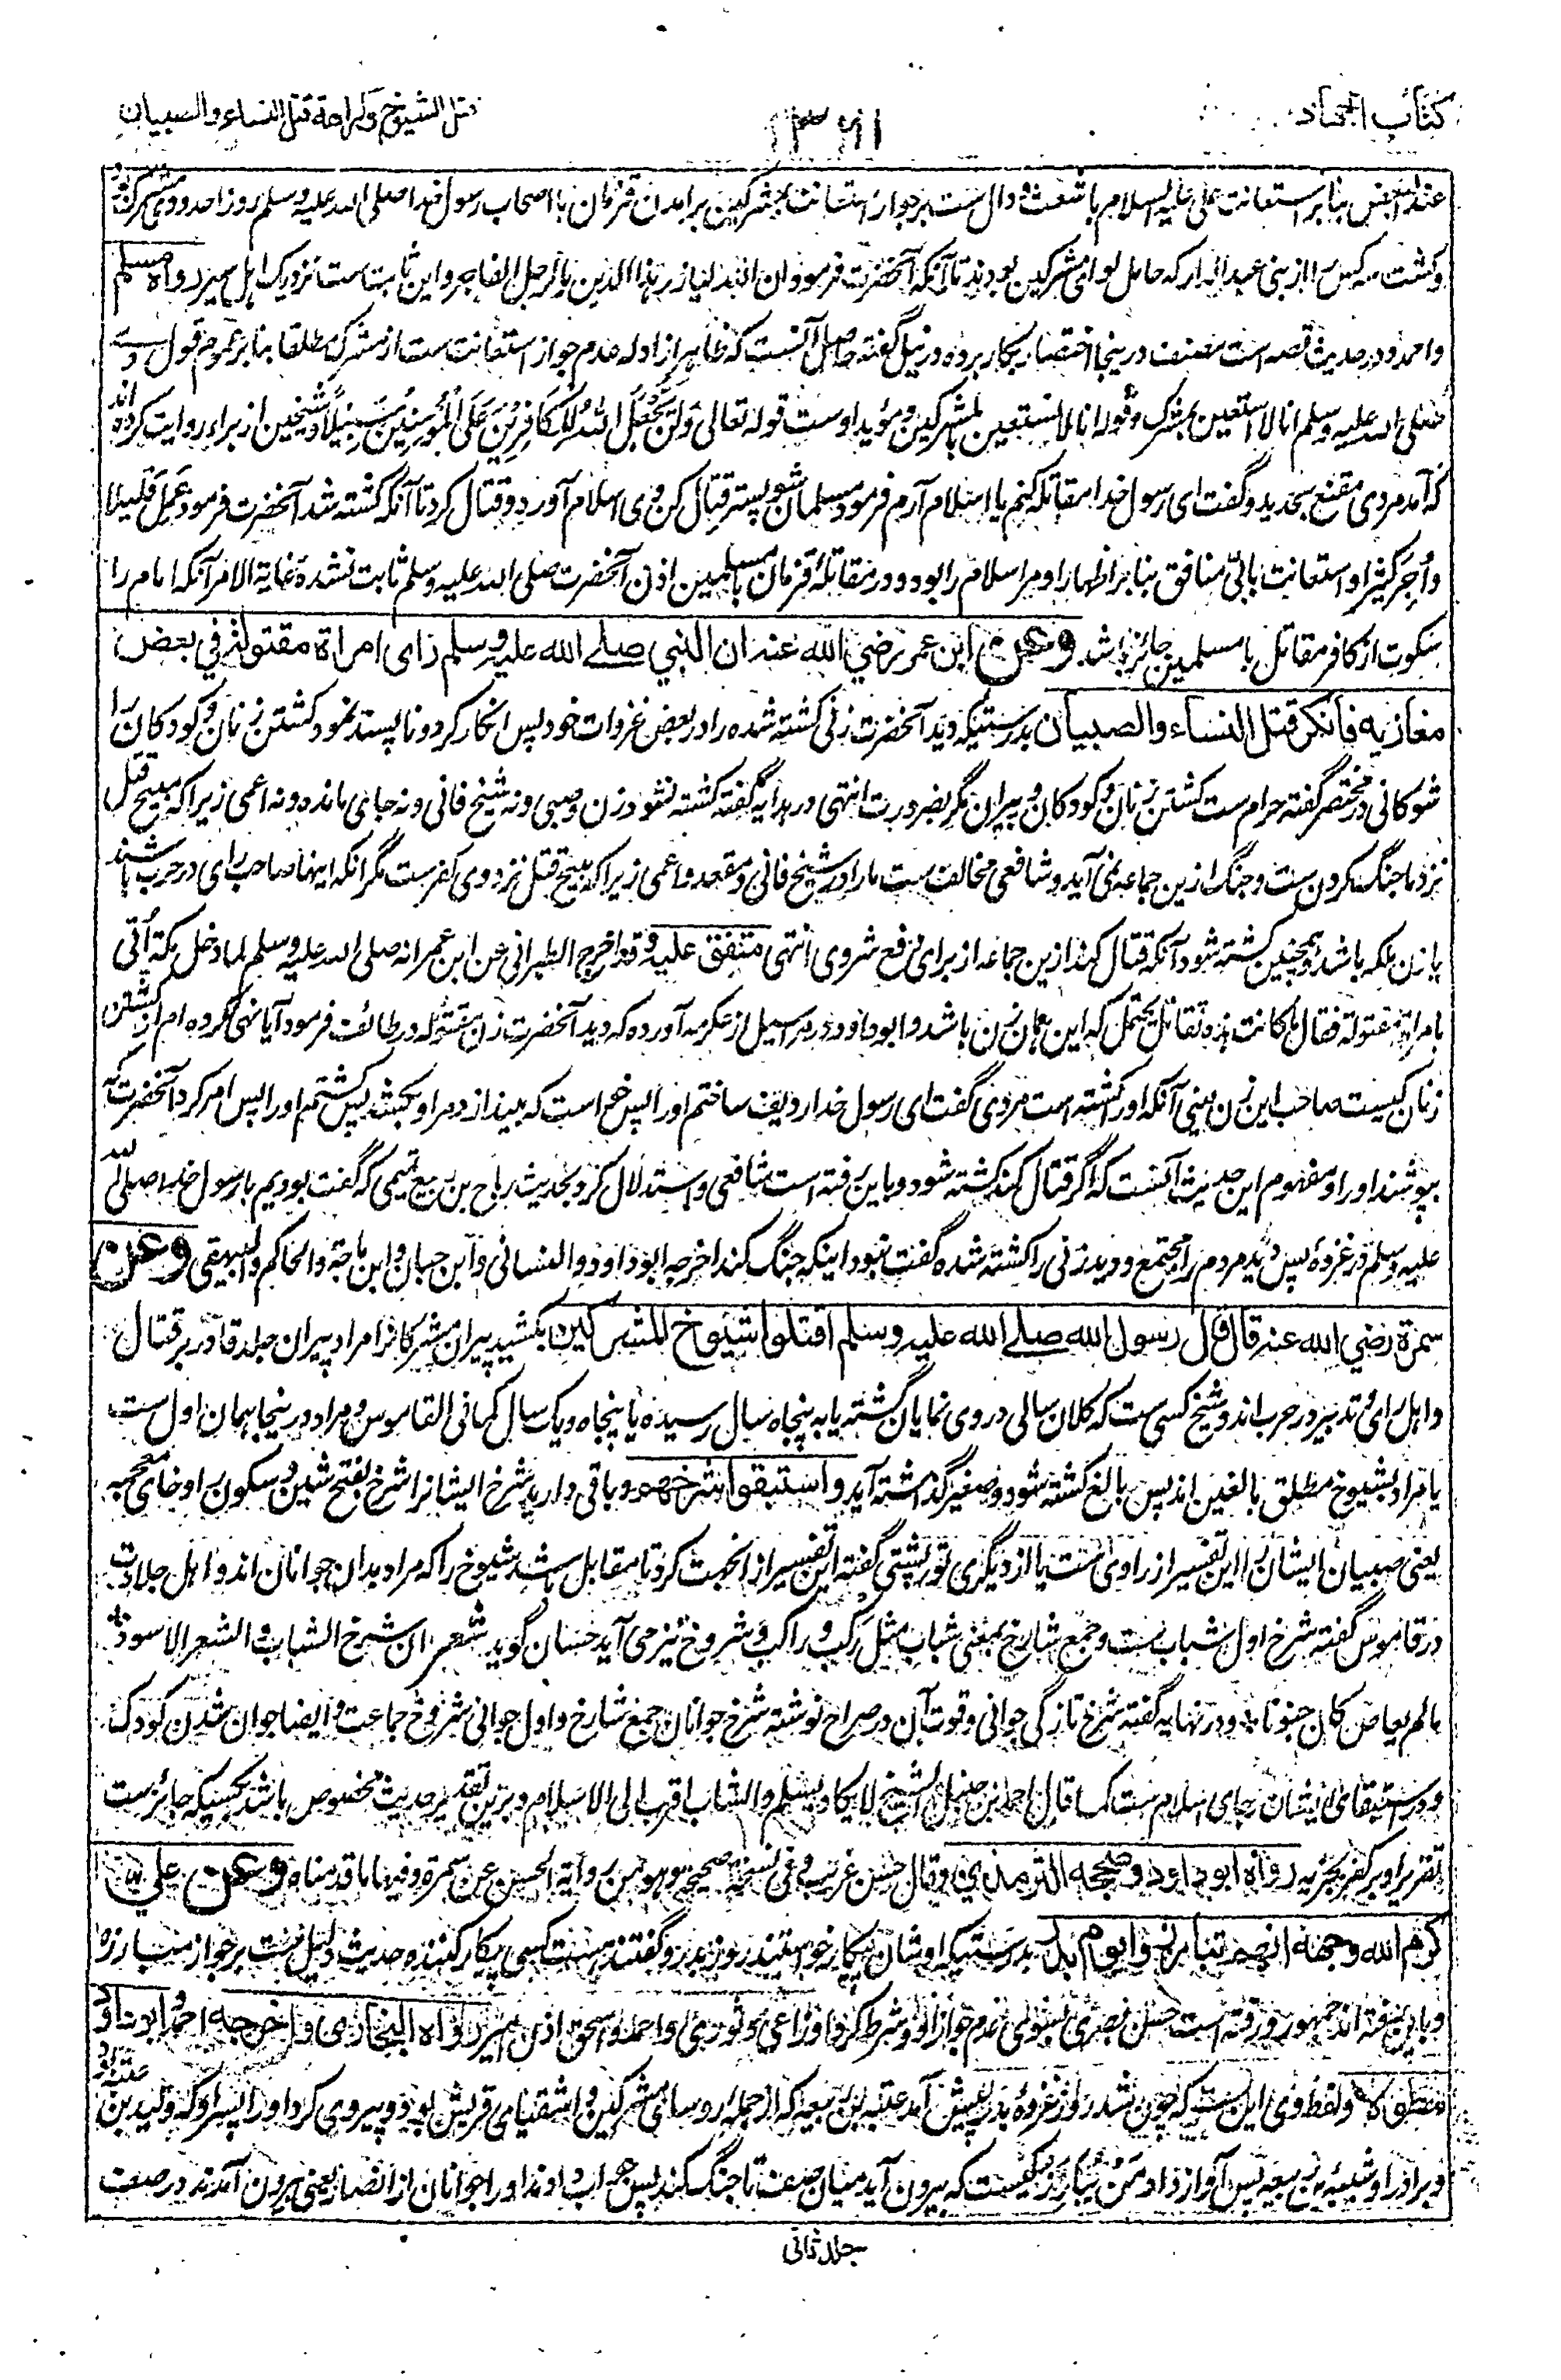 کتاب الجهاد
قتل الشیوخ وکراهة قتل النساء والصبیان
عند البعض بنابر استعانت علی علیه السلام باشعث و دال ست بر جواز استعانت بمشرکین برآمدن قزمان با اصحاب رسول خدا صلی الله علیه وسلم روز احد و وی مشرک بود
و کشت سه کس را از بنی عبدالدار که حامل لوای مشرکین بودند تا آنکه آنحضرت فرمود ان الله لیازر هذا الدین بالرجل الفاجر و این ثابت ست نزدیک اهل سیر رواه مسلم
و احمد و در حدیث قصه است مصنف درینجا اختصار بکار برده در نیل گفته حاصل آنست که ظاهر از ادله عدم جواز استعانت ست از مشرک مطلقا بنابر عموم قول وی
صلی الله علیه وسلم انا لا استعین بمشرک و قوله انا لا نستعین بالمشرکین و مؤید اوست قوله تعالی وَلَن یَجْعَلَ اللهُ لِلْکَافِرِینَ عَلَی الْمُؤمِنِینَ سَبِیلًا و شیخین از براء روایت کرده اند
که آمد مردی مقنع بحدید و گفت ای رسول خدا مقاتله کنم یا اسلام آرم فرمود مسلمان شو پستر قتال کن وی اسلام آورد و قتال کرد تا آنکه کشته شد آنحضرت فرمود عمل قلیلا
و اُجر کثیرا و استعانت بابی منافق بنابر اظهار او مر اسلام را بود و در مقاتلهٔ قزمان بامسلمین اذن آنحضرت صلی الله علیه وسلم ثابت نشده غایة الامر آنکه امام را
سکوت از کافر مقاتل با مسلمین جائز باشد وعن ابن عمر رضي الله عنه ان النبي صلے الله علیه وسلم رای امراة مقتولة في بعض
مغازیه فانکر قتل النساء والصبیان بدرستیکه دید آنحضرت زنی کشته شده را در بعض غزوات خود پس انکار کرد و ناپسند نمود کشتن زنان و کودکان را
شوکانی در مختصر گفته حرام ست کشتن زنان و کودکان و پیران مگر بضرورت انتهی در هدایه گفته کشته نشود زن و صبی و نه شیخ فانی و نه جای مانده و نه اعمی زیرا که مبیح قتل
نزد ما جنگ کردن ست و جنگ ازین جماعه نمی آید و شافعی مخالف ست ما را در شیخ فانی و مقعد و اعمی زیرا که مبیح قتل نزد وی کفرست مگر آنکه اینها صاحب رای در حرب باشند
یا زن ملکه باشد و همچنین کشته شود آنکه قتال کند ازین جماعه از برای رفع شر وی انتهی متفق علیه و قد اخرج الطبرانی عن ابن عمر انه صلی الله علیه وسلم لما دخل مکة اُتی
بامراة مقتولة فقال ما کانت هذه تقاتل یحتمل که این همان زن باشد و ابوداود در مراسیل از عکرمه آورده که دید آنحضرت زن مقتوله در طائف فرمود آیا نهی نکرده ام از کشتن
زنان کیست صاحب این زن یعنی آنکه او را کشته است مردی گفت ای رسول خدا ردیف ساختم او را پس خواست که بیندازد مرا و بکشد پس کشتم او را پس امر کرد آنحضرت که
بپوشند او را و مفهوم این حدیث آنست که اگر قتال کند کشته شود و باین رفته است شافعی و استدلال کرد بحدیث رباح بن ربیع تمیمی که گفت بودیم با رسول خدا صلی الله
علیه وسلم در غزوهٔ پس دید مردم را مجتمع و دید زنی را کشته شده گفت نبود اینکه جنگ کند اخرجه ابوداود والنسائی و ابن حبان و ابن ماجة والحاکم والبیهقی وعن
سمرة رضي الله عنه قال قال رسول الله صلے الله علیه وسلم اقتلوا شیوخ المشرکین بکشید پیران مشرکان را مراد پیران جلد قادر بر قتال
و اهل رای و تدبیر در حرب اند و شیخ کسی ست که کلان سالی در وی نمایان گشته یا به پنجاه سال رسیده یا پنجاه و یک سال کما فی القاموس و مراد درینجا همان اول ست
یا مراد بشیوخ مطلق بالغین اند پس بالغ کشته شود و صغیر گذاشته آید واستبقوا شرخهم و باقی دارید شرخ ایشانرا شرخ بفتح شین و سکون را و خای معجمه
یعنی صبیان ایشان را این تفسیر از راوی ست یا از دیگری تورپشتی گفته این تفسیر از انجهت کرد تا مقابل باشد شیوخ را که مراد بدان جوانان اند و اهل جلادت
در قاموس گفته شرخ اول شباب ست و جمع شارخ بمعنی شباب مثل رکب و راکب و شروخ نیز می آید حسان گوید شعر ان شرخ الشباب والشعر الاسود
مالم یعاص کان جنونا و در نهایه گفته شرخ تازگی جوانی و قوت آن در صراح نوشته شرخ جوانان جمع شارخ و اول جوانی شروخ جماعت و ایضا جوان شدن کودک
و در استبقای ایشان رجای اسلام ست کما قال احمد بن حنبل الشیخ لا یکاد یسلم والشاب اقرب الی الاسلام و برین تقدیر حدیث مخصوص باشد بکسیکه جائزست
تقریر او بر کفر بجزیه رواه ابوداود وصححه الترمذي و قال حسن غریب و فی نسخة صحیح و هو من روایة الحسن عن سمرة و فیها ما قدمناه وعن علي
کرم الله وجهه انهم تبارزوا یوم بدر بدرستیکه اوشان پیکار خواستند روز بدر و گفتند هست کسی پیکار کننده و حدیث دلیل ست بر جواز مبارزه
و باین رفته اند جمهور و رفته است حسن بصری بسوی عدم جواز او و شرط کرد اوزاعی و ثوری و احمد و اسحق اذن امیر رواه البخاري واخرجه احمد وابو داود
مطولا و لفظ وی این ست که چون شد روز غزوهٔ بدر پیش آمد عتبه بن ربیعه که از جمله رؤسای مشرکین و اشقیای قریش بود و پیروی کرد او را پسر او که ولید بن عتبه بود
و برادر او شیبه بن ربیعه پس آواز داد من یبارز کیست که بیرون آید میان صف تا جنگ کند پس جواب دادند او را جوانان از انصار یعنی بیرون آمدند در صف
جلد ثانی